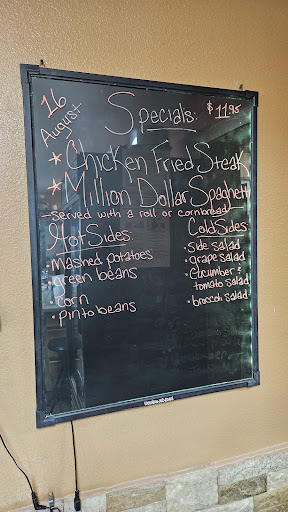 16
August
Specials: $11.95
* Chicken Fried Steak
* Million Dollar Spaghetti
- served with a roll or cornbread
Hot Sides:
• Mashed potatoes
• green beans
• corn
• pinto beans
Cold Sides:
• side salad
• grape salad
• cucumber &
tomato salad
• broccoli salad